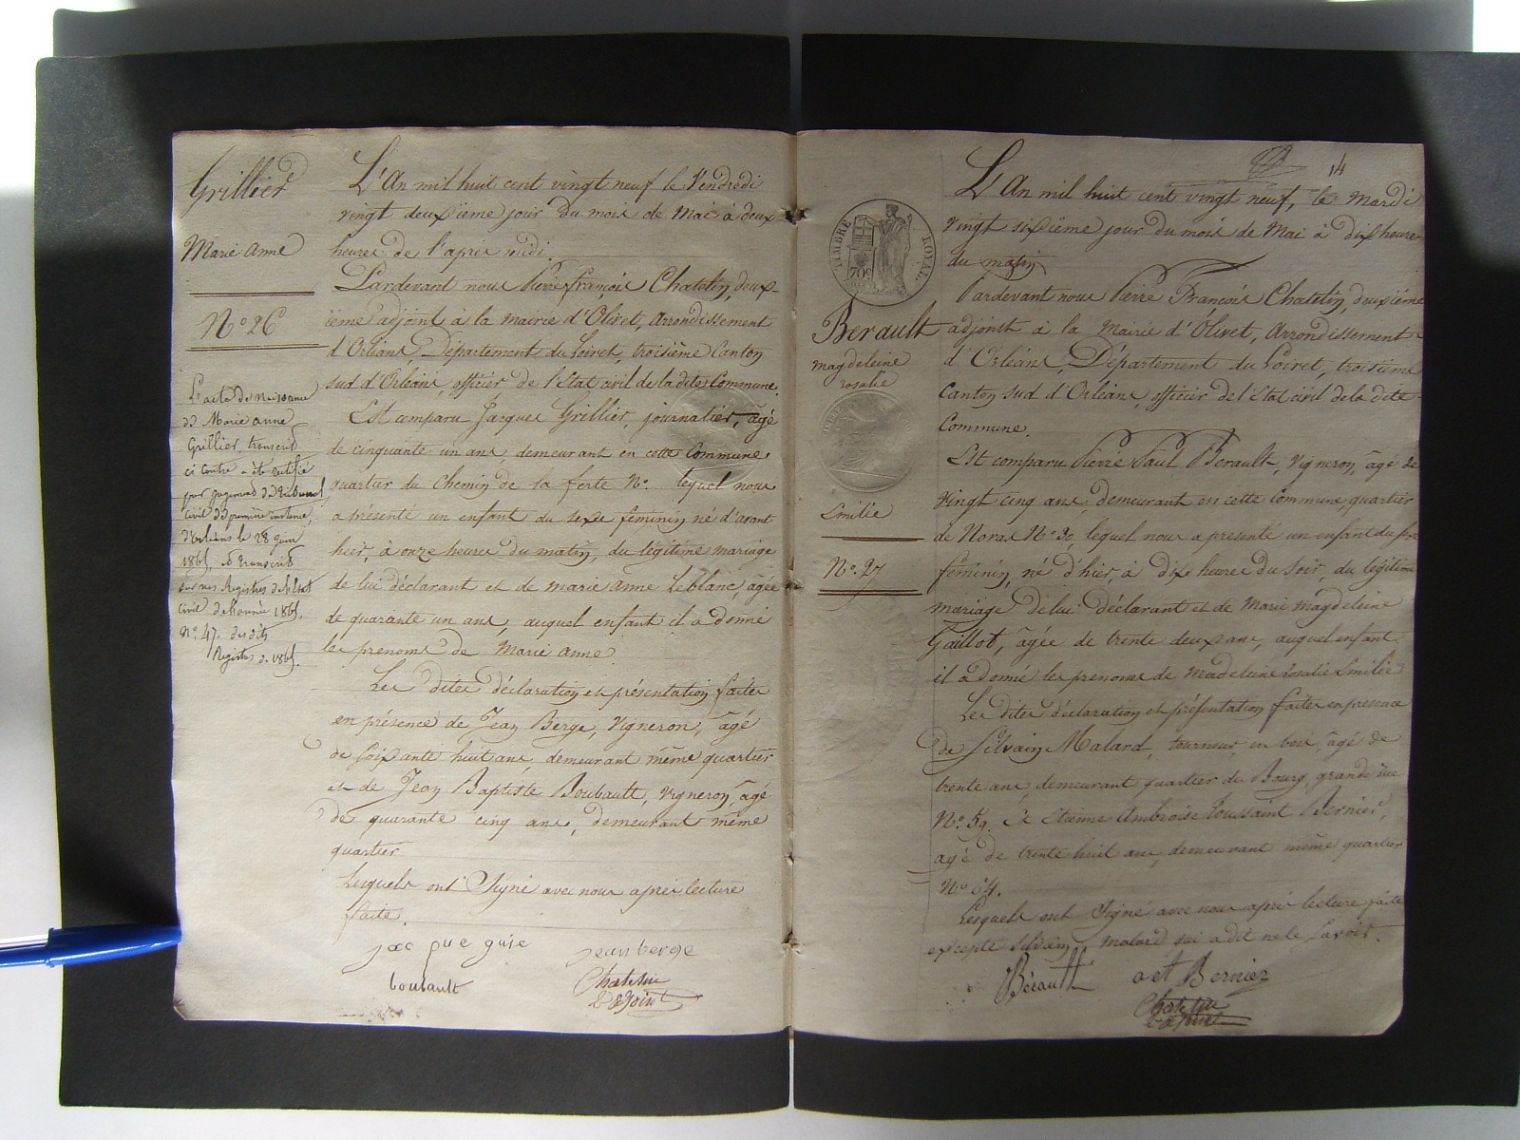 Grillier
Marie Anne
N.o 26
L'acte de naissance
de Marie anne
Grillier, transcrit
ci contre a été rectifié
par jugement du Tribunal
civil de première instance
d'Orléans le 28 juin
1865, et transcrit
sur nos Registres de l'Etat
civil de l'année 1865.
N.o 47. des dits
Registres de 1865.
L'An mil huit cent vingt neuf le Vendredi
vingt deuxieme jour du mois de Mai à deux
heures de l'apres midi.
Pardevant nous Pierre françois Chatelin, deux-
ième adjoint à la mairie d'Olivet, Arrondissement
d'Orléans Département du Loiret, troisième Canton
sud d'Orléans, officier de l'Etat civil de la dite Commune.
Est comparu Jacques Grillier, journalier, âgé
de cinquante un ans demeurant en cette Commune
quartier du Chemin de la ferté N.o lequel nous
a présenté un enfant du sexe féminin né d'avant
hier, à onze heures du matin, du légitime mariage
de lui déclarant et de marie anne Leblanc, âgée
de quarante un ans, auquel enfant il a donné
les prenoms de Marie anne.
Les dites déclaration et présentation faites
en présence de Jean Berge, Vigneron, âgé
de soixante huit ans, demeurant même quartier
et de Jean Baptiste Boubault, Vigneron âgé
de quarante cinq ans, demeurant même
quartier
Lesquels ont Signé avec nous après lecture
faite.
jean berge
boubault
Chatelin
14
TIMBRE ROYAL
70c
Berault
magdeleine
rosalie
Emilie
N.o 27
L'An mil huit cent vingt neuf, le Mardi
vingt sixième jour du mois de Mai à dix heures
du matin
Pardevant nous Pierre François Chatelin, deuxième
adjoint à la Mairie d'Olivet, Arrondissement
d'Orléans, Département du Loiret, troisieme
Canton sud d'Orléans, officier de l'Etat civil de la dite
Commune.
Est comparu Pierre Paul Berault, Vigneron, âgé de
vingt cinq ans, demeurant en cette Commune, quartier
de Noras N.o 30, lequel nous a présenté un enfant du
féminin, né d'hier, à dix heures du soir, du légitime
mariage de lui déclarant et de Marie Magdeleine
Gaillot, âgée de trente deux ans, auquel enfant
il a donné les prenoms de Madeleine rosalie Emilie
Les dites déclaration et présentation faites en presence
de Silvain Malard, tourneur en bois, âgé de
trente ans, demeurant quartier du Bourg, grande rue
N.o 59. Et Etienne Ambroise Toussaint Bernier,
agé de trente huit ans, demeurant même quartier
N.o 64.
Lesquels ont Signé avec nous après lecture faite
excepté silvain malard qui a dit ne le Savoir.
Bérault
aet Bernier
Chatelin